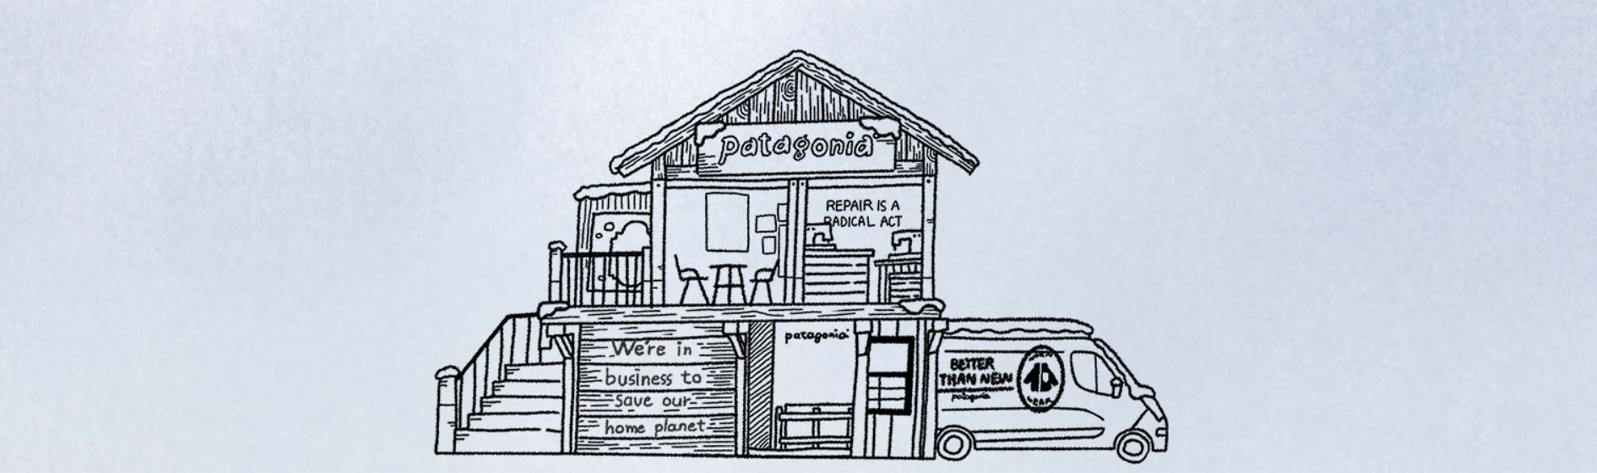 patagonia
REPAIR IS A
RADICAL ACT
We're in
business to
save our
home planet
patagonia
BETTER
THAN NEW
patagonia
WORN
WEAR